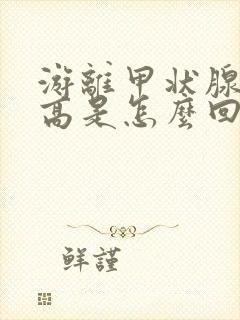 游離甲状腺
高是怎麼回
鮮謹